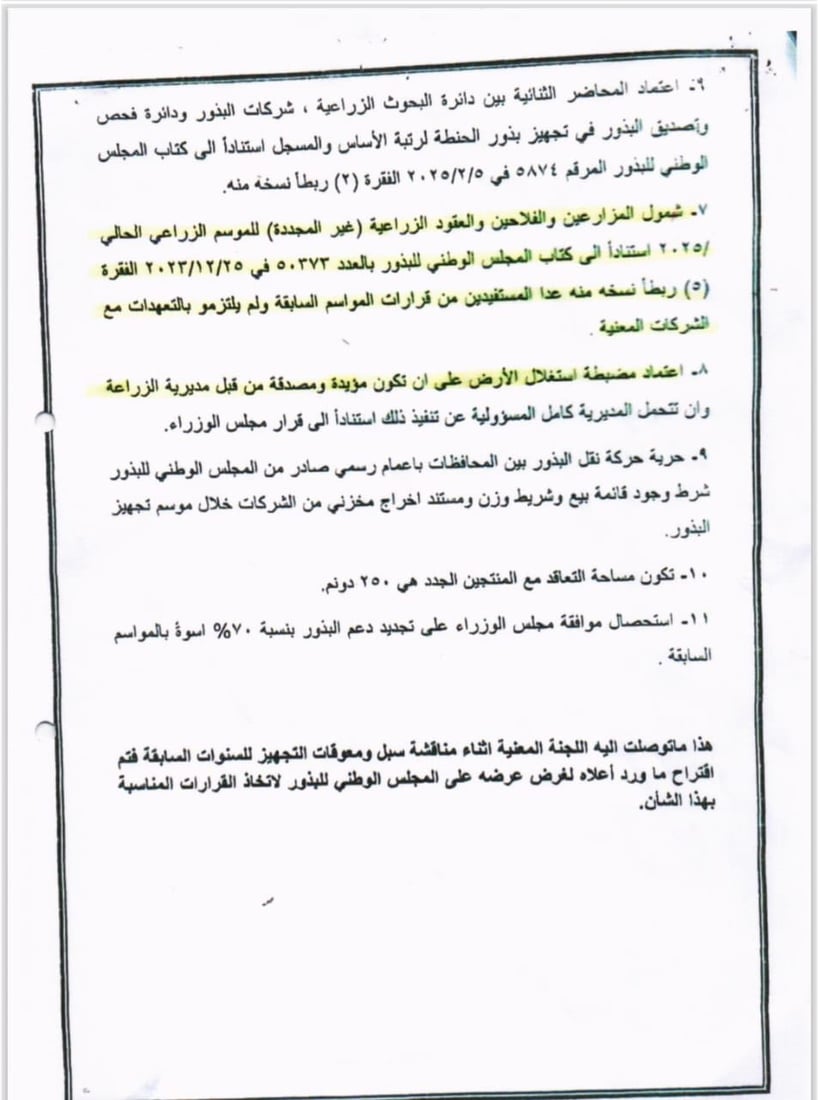 ٦- اعتماد المحاضر الثنائية بين دائرة البحوث الزراعية ، شركات البذور ودائرة فحص
وتصديق البذور في تجهيز بذور الحنطة لرتبة الأساس والمسجل استناداً الى كتاب المجلس
الوطني للبذور المرقم ٥٨٧٤ في ٢٠٢٥/٢/٥ الفقرة (٢) ربطاً نسخه منه.
٧- شمول المزارعين والفلاحين والعقود الزراعية (غير المجددة) للموسم الزراعي الحالي
/٢٠٢٥ استناداً الى كتاب المجلس الوطني للبذور بالعدد ٥٠٣٧٣ في ٢٠٢٣/١٢/٢٥ الفقرة
(٥) ربطاً نسخه منه عدا المستفيدين من قرارات المواسم السابقة ولم يلتزمو بالتعهدات مع
الشركات المعنية .
٨- اعتماد مضبطة استغلال الأرض على ان تكون مؤيدة ومصدقة من قبل مديرية الزراعة
وان تتحمل المديرية كامل المسؤولية عن تنفيذ ذلك استناداً الى قرار مجلس الوزراء.
٩- حرية حركة نقل البذور بين المحافظات باعمام رسمي صادر من المجلس الوطني للبذور
شرط وجود قائمة بيع وشريط وزن ومستند اخراج مخزني من الشركات خلال موسم تجهيز
البذور.
١٠- تكون مساحة التعاقد مع المنتجين الجدد هي ٢٥٠ دونم.
١١- استحصال موافقة مجلس الوزراء على تجديد دعم البذور بنسبة ٧٠% اسوةً بالمواسم
السابقة .
هذا ماتوصلت اليه اللجنة المعنية اثناء مناقشة سبل ومعوقات التجهيز للسنوات السابقة فتم
اقتراح ما ورد أعلاه لغرض عرضه على المجلس الوطني للبذور لاتخاذ القرارات المناسبة
بهذا الشأن.